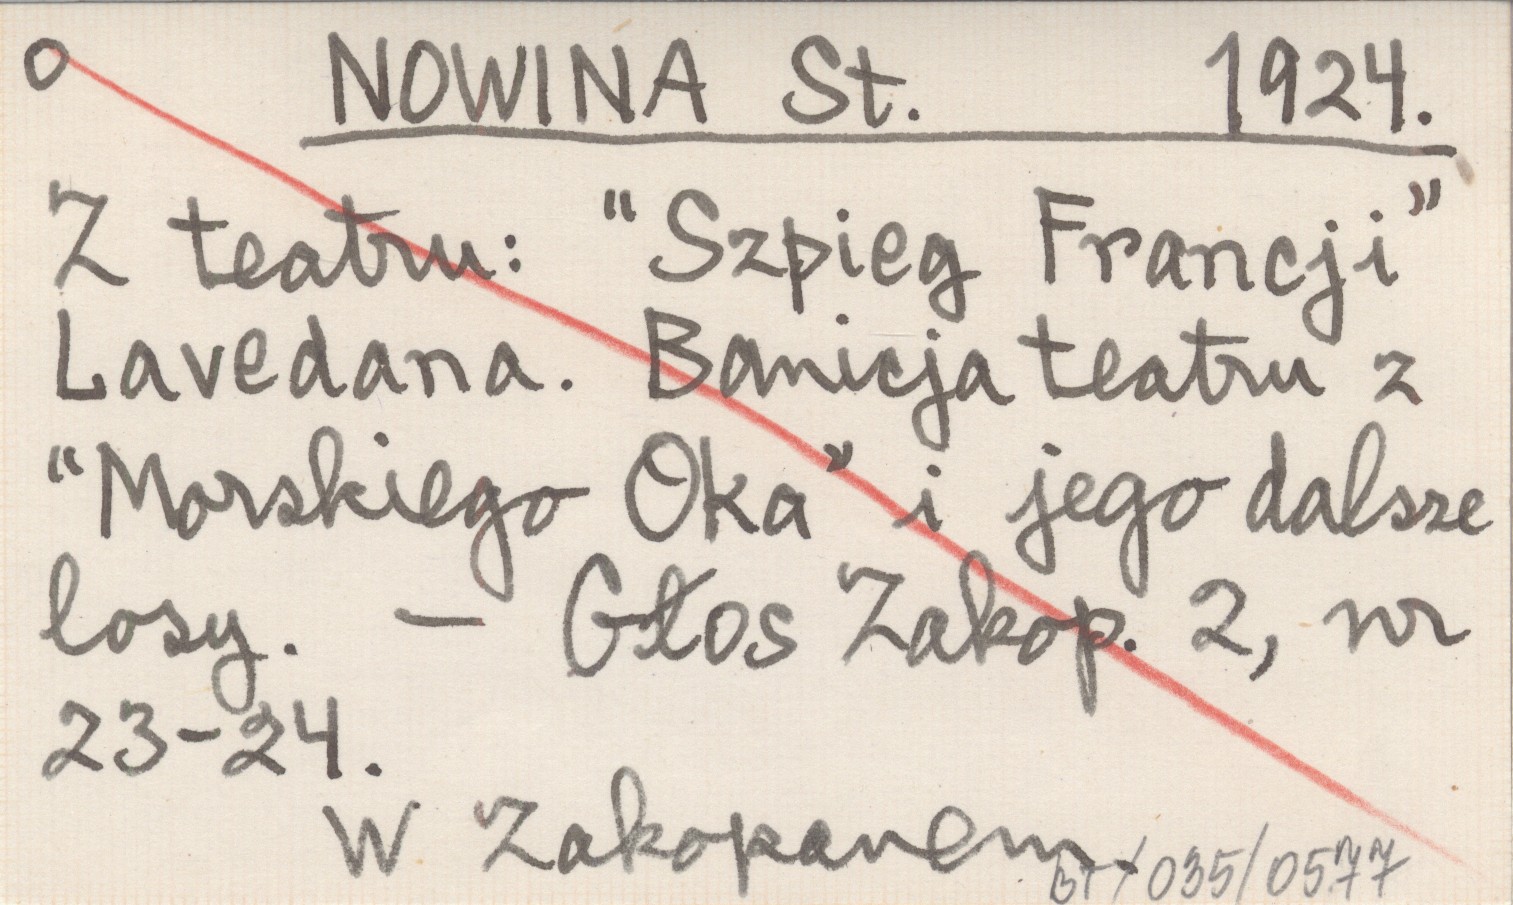 o NOWINA St. 1924.
Z teatru: "Szpieg Francji"
Lavedana. Banicja teatru z
"Morskiego Oka" i jego dalsze
losy. — Głos Zakop. 2, nr
23-24.
W Zakopanem
/035/0577